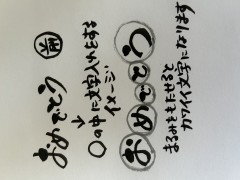 おめでとう
↓
○の中に文字入れをする
イメージ
おめでとう
まるみをもたせると
カワイイ文字になります